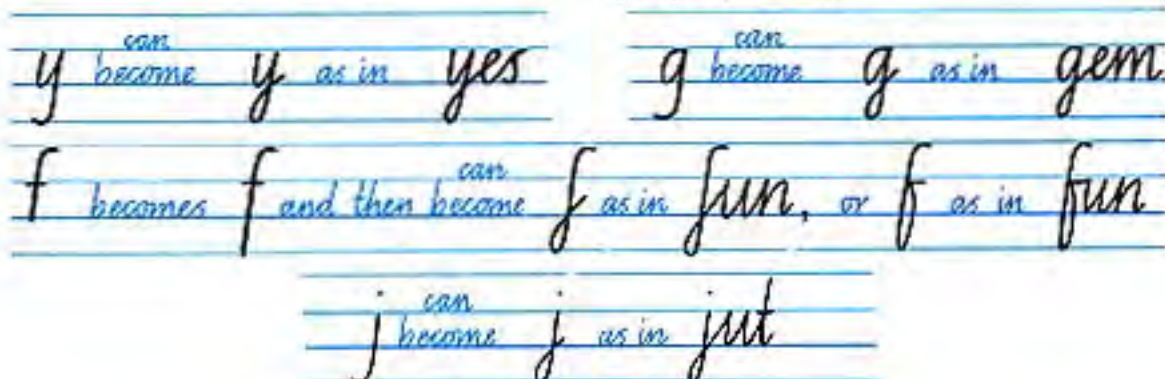 y can become y as in yes
g can become g as in gem
f becomes f and then can become f as in fun, or f as in fun
j can become j as in jut